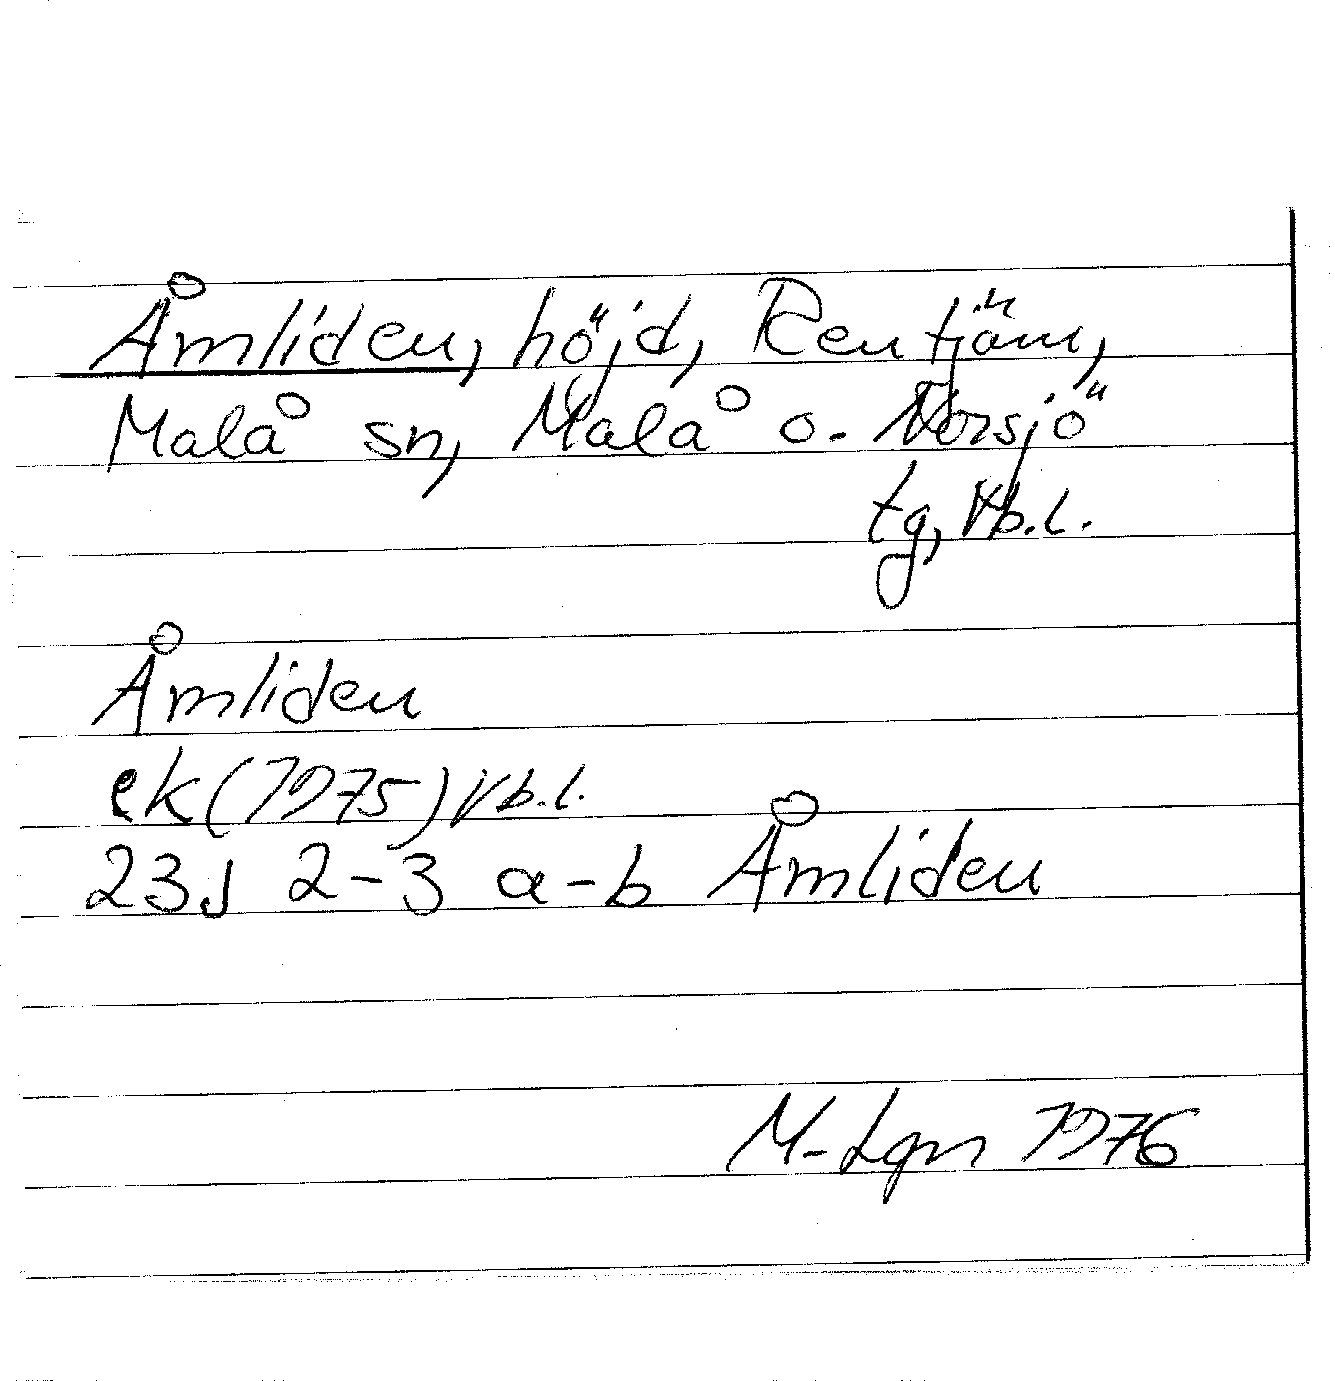 Åmliden, höjd, Rentjärn,
Malå sn, Malå o. Norsjö
tg, Vb.l.
Åmliden
ek (1975) Vb.l.
23J 2-3 a-b Åmliden
M-Lgn 1976